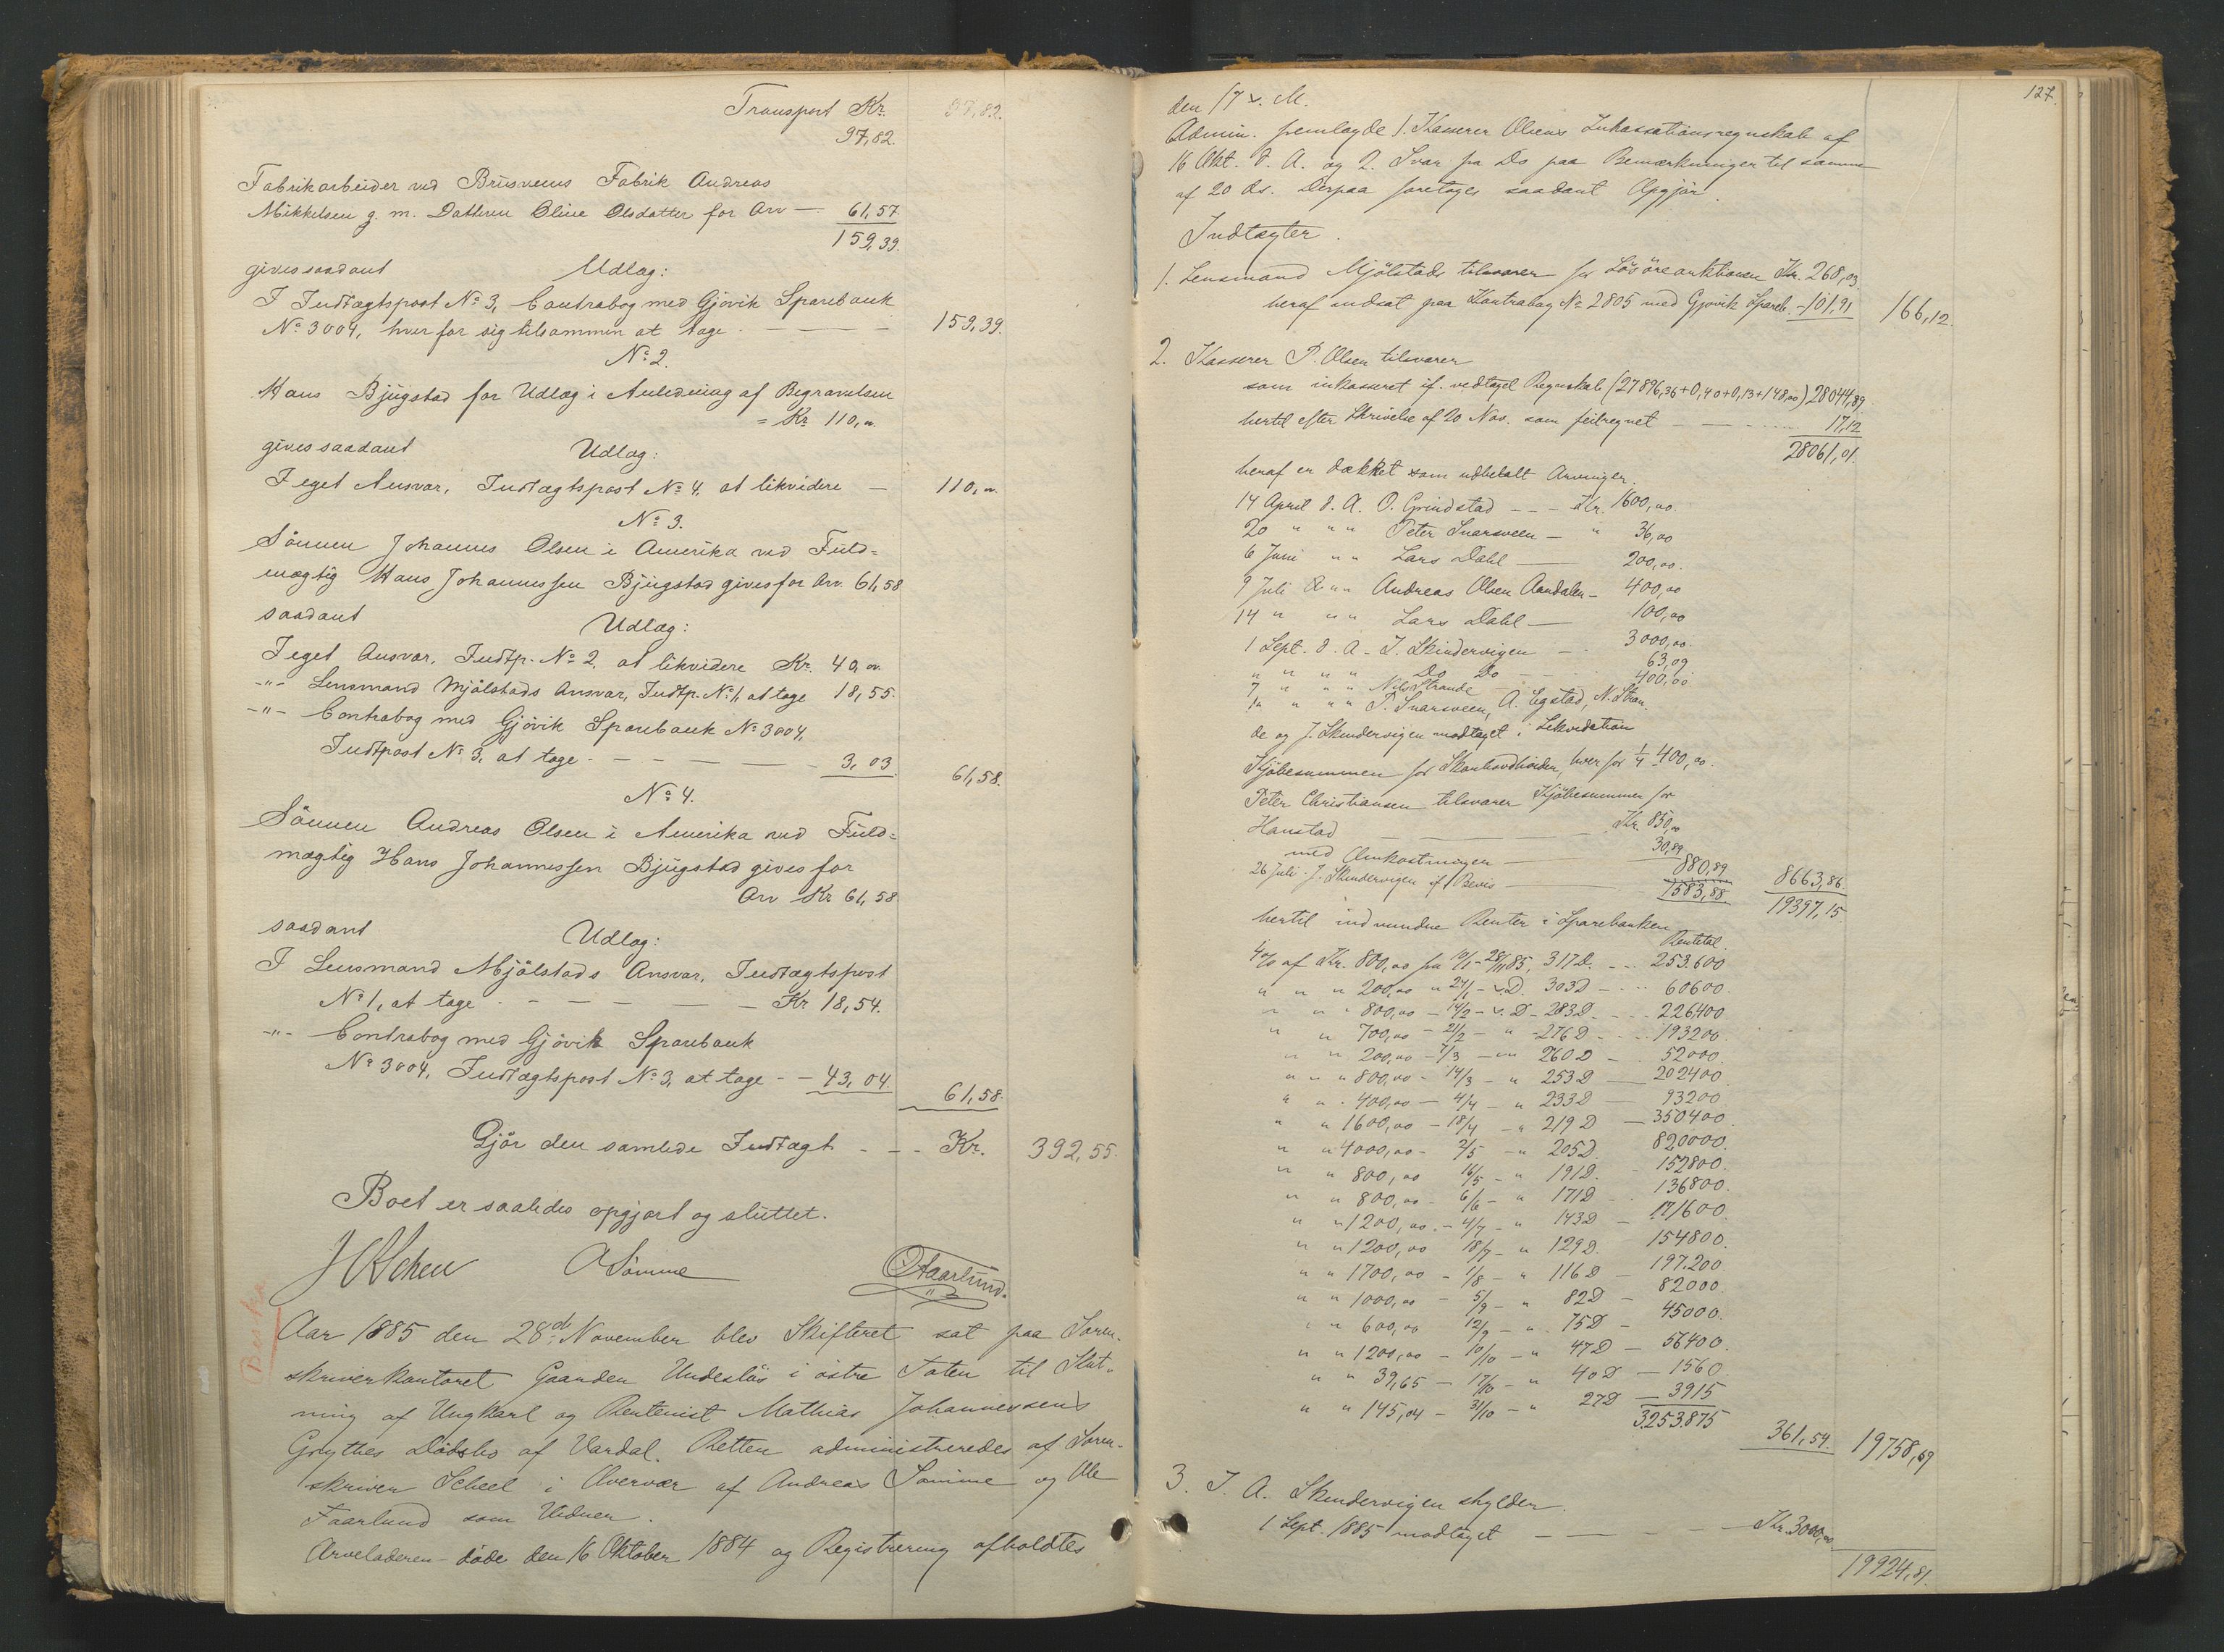 Transport Kr. 97,82.
97,82.
Fabrikarbeider ved Brusveens Fabrik Andreas
Mikkelsen g. m. Datteren Oline Olsdatter for Arv — 61,57.
159,39.
gives saadant Udlæg:
I Indtægtspost No 3, Contrabog med Gjøvik Sparebank
No 3004, hver for sig tilsammen at tage - — — — 159,39.
No 2.
Hans Bjugstad for Udlæg i Anledning af Begravelsen
= Kr 110,00
gives saadant Udlæg:
I eget Ansvar, Indtægtspost No 4, at likvidere — 110,00
No 3.
Sønnen Johannes Olsen i Amerika ved Fuld=
mægtig Hans Johannessen Bjugstad gives for Arv. 61,58
saadant Udlæg:
I eget Ansvar, Indtp. No 2. at likvidere Kr. 40,00
-"- Lensmand Mjølstads Ansvar, Indtp. No 1, at tage 18,55.
-"- Contrabog med Gjøvik Sparebank No 3004,
Indtpost No 3, at tage - — — — — 3,03. 61,58.
No 4.
Sønnen Andreas Olsen i Amerika ved Fuld=
mægtig Hans Johannessen Bjugstad gives for
Arv Kr 61,58
saadant Udlæg:
I Lensmand Mjølstads Ansvar, Indtægtspost
No 1, at tage - — — — — Kr 18,54.
-"- Contrabog med Gjøvik Sparebank
No 3004, Indtægtspost No 3, at tage - - 43,04. 61,58.
Gjør den samlede Indtægt - - - Kr. 392,55.
Boet er saaledes opgjort og sluttet.
A Sømme O Faarlund.
Aar 1885 den 28de November blev Skifteret sat paa Soren-
skriverkontoret Gaarden Undeslös i östre Toten til Slut-
ning af Ungkarl og Rentenist Mathias Johannessens
Grythes Dödsbo af Vardal. Retten administreredes af Soren-
skriver Scheel i Overvær af Andreas Sömme og Ole
Faarlund som Vidner.
Arveladeren døde den 16 Oktober 1884 og Registrering afholdtes
127.
den 17 s. M.
Admin. fremlagde 1. Kasserer Olsens Inkassationsregnskab af
16 Okt. d. A. og 2. Svar fra Do paa Bemærkninger til samme
af 20 ds. Derpaa foretoges saadant Opgjör.
Indtægter.
1. Lensmand Mjölstads tilsvarer for Lösöreauktionen Kr. 268,03
heraf indsat paa Kontrabog No 2805 med Gjøvik Spareb. - 101,91 166,12.
2. Kasserer P. Olsen tilsvarer
som inkasseret if. vedtaget Regnskab (27896,36+0,40+0,13+148,00) 28044,89
hertil efter Skrivelse af 20 Nov. som feilregnet — — - - - - 17,12
28061,01.
heraf er dækket som udbetalt Arvinger.
14 April d. A. O. Grindstad - - - Kr. 1600,00.
20 " " " Peter Snarsveen — " 36,00
6 Juni " " Lars Dahl — 200,00.
9 Juli " " Andreas Olsen Aandalen — 400,00
14 " " " Lars Dahl — 100,00
1 Sept. d. A. - J. Skindervigen — - 3000,00.
" " " " Do Do - - - 63,09
7 " " " Nils Strande — 400,00
1" " " " P. Snarsveen, A. Egstad, N. Stran-
de og J. Skindervigen modtaget i Likvidation
Kjöbesummen for , hver for 1/4 400,00.
Peter Christiansen tilsvarer Kjöbesummen for
Hanstad — — — — Kr. 850,00
med Omkostninger — 30,89 880,89
26 Juli J. Skindervigen if. Bevis — — 1583,88 8663,86.
19397,15
hertil indvundne Renter i Sparebanken
Rentetal.
4% af Kr. 800,00 fra 10/1 - 28/11 85, 317D. - - 253.600
" " " 200,00 " 24/1 - s.D. 303D - - - 60600.
" " " 800,00 - 14/2 - s.D - 283D - - - 226400
" " 700,00 - 21/2 - " - 276D - - - 193200.
" " 200,00 - 7/3 - "" 260D - - 52000.
" " " 800,00 - 14/3 - " 253D — 202400
" " - 400,00 - 4/4 - " 233D — 93200
" " 1600,00 - 18/4 - " 219D — 350400
" " 4000,00 - 2/5 - " 205D. 820000.
" " 800,00 16/5 - " 191D. - 152800.
" " 800,00 - 6/6 - " 171D - - 136800.
" " 1200,00 - 4/7 - " 143D — 171600.
" " 1200,00 18/7 - " 129D. 154800.
" " 1700,00 - 1/8 - " 116D — 197.200
" " 1000,00 - 5/9 - " 82D - 82000.
" " 600,00 12/9 - " 75D - 45000.
" " 1200,00 - 10/10 - " 47D — 56400.
" " 39,65 - 17/10 - " 40D — 1560.
" " 145,04 - 31/10 - " 27D — 3915
3253.875 361,54. 19758,69
3. J. A. Skindervigen skylder.
1 Sept. 1885 modtaget — — — — Kr. 3000,00.
19924,81.